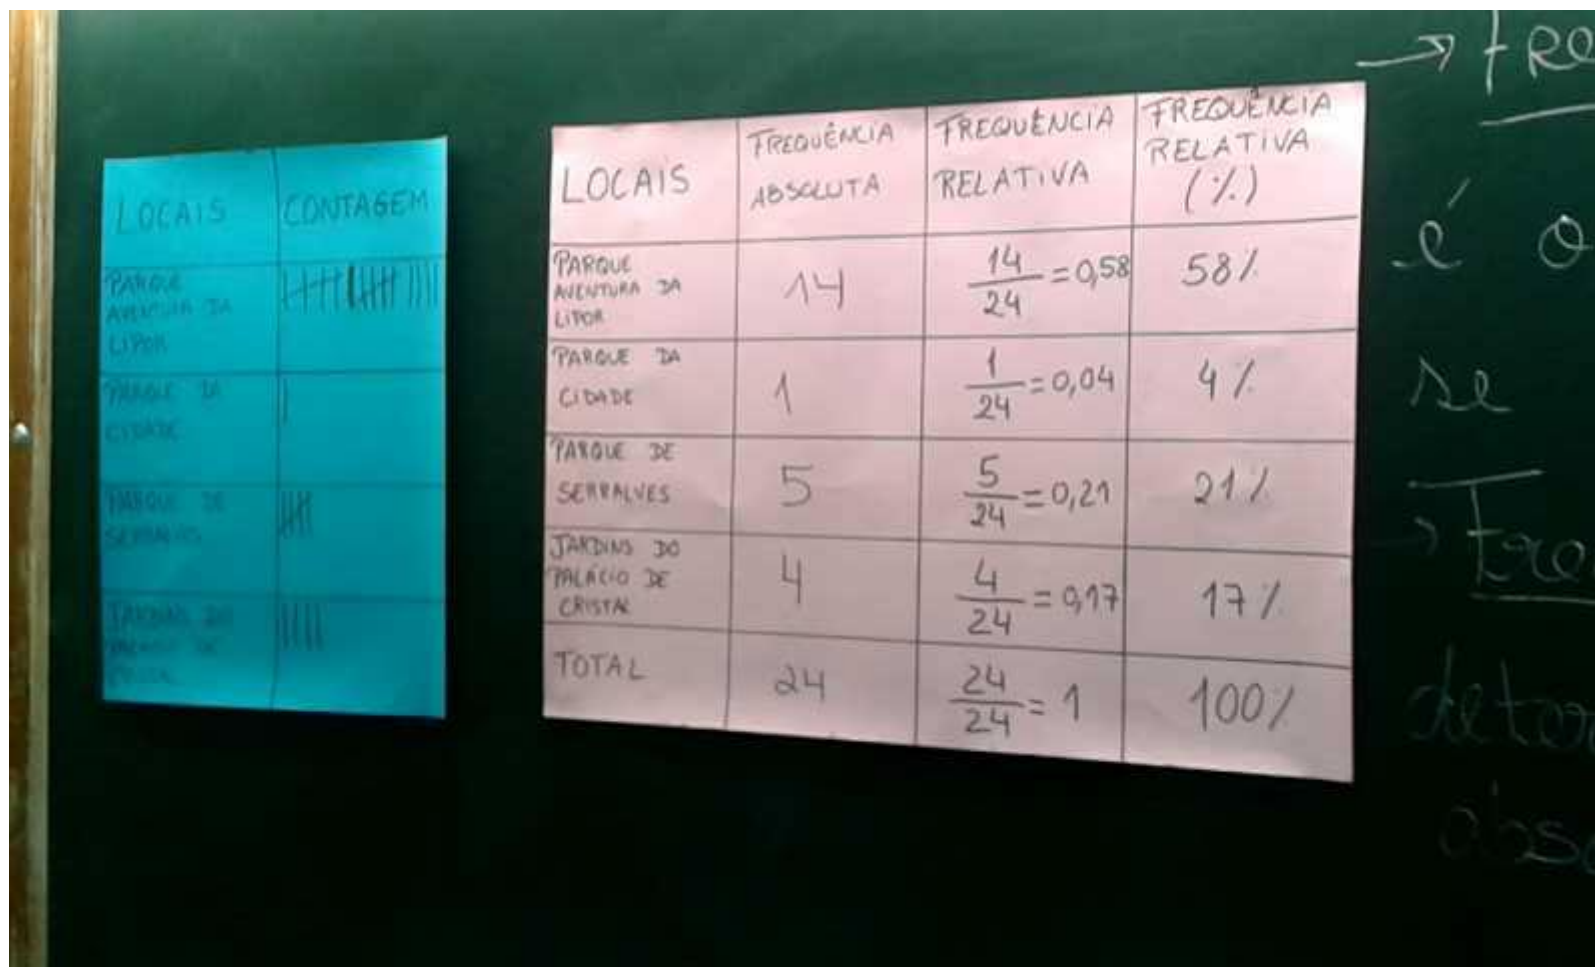 LOCAIS CONTAGEM
PARQUE
AVENTURA DA
LIPOR
PARQUE DA
CIDADE
PARQUE DE
SERRALVES
JARDINS DO
PALÁCIO DE
LOCAIS
FREQUÊNCIA
ABSOLUTA
FREQUÊNCIA
RELATIVA
FREQUÊNCIA
RELATIVA
(%)
PARQUE
AVENTURA DA
LIPOR
14
14/24 = 0,58
58%
PARQUE DA
CIDADE
1
1/24 = 0,04
4%
PARQUE DE
SERRALVES
5
5/24 = 0,21
21%
JARDINS DO
PALÁCIO DE
CRISTAL
4
4/24 = 0,17
17%
TOTAL
24
24/24 = 1
100%
→ Fre
é o
se
→ Fre
deter
abso